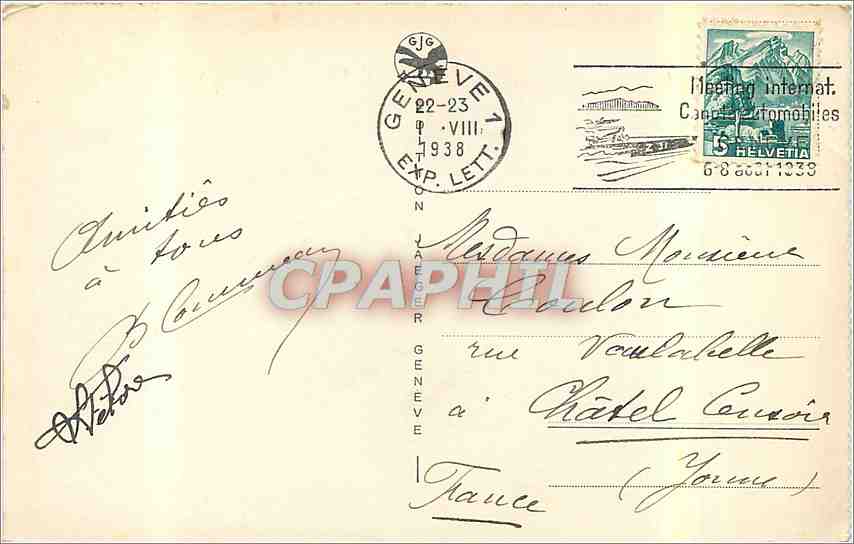 GJG
GENÈVE 1
22-23
I .VIII
1938
EXP. LETT.
Meeting internat.
Canots automobiles
6-8 août 1938
5 HELVETIA
EDITION JAEGER GENÈVE
Amitiés
à tous
CPAPHIL
Mesdames Monsieur
Coulon
rue Vaulabelle
à Châtel Censoir
(Yonne)
France